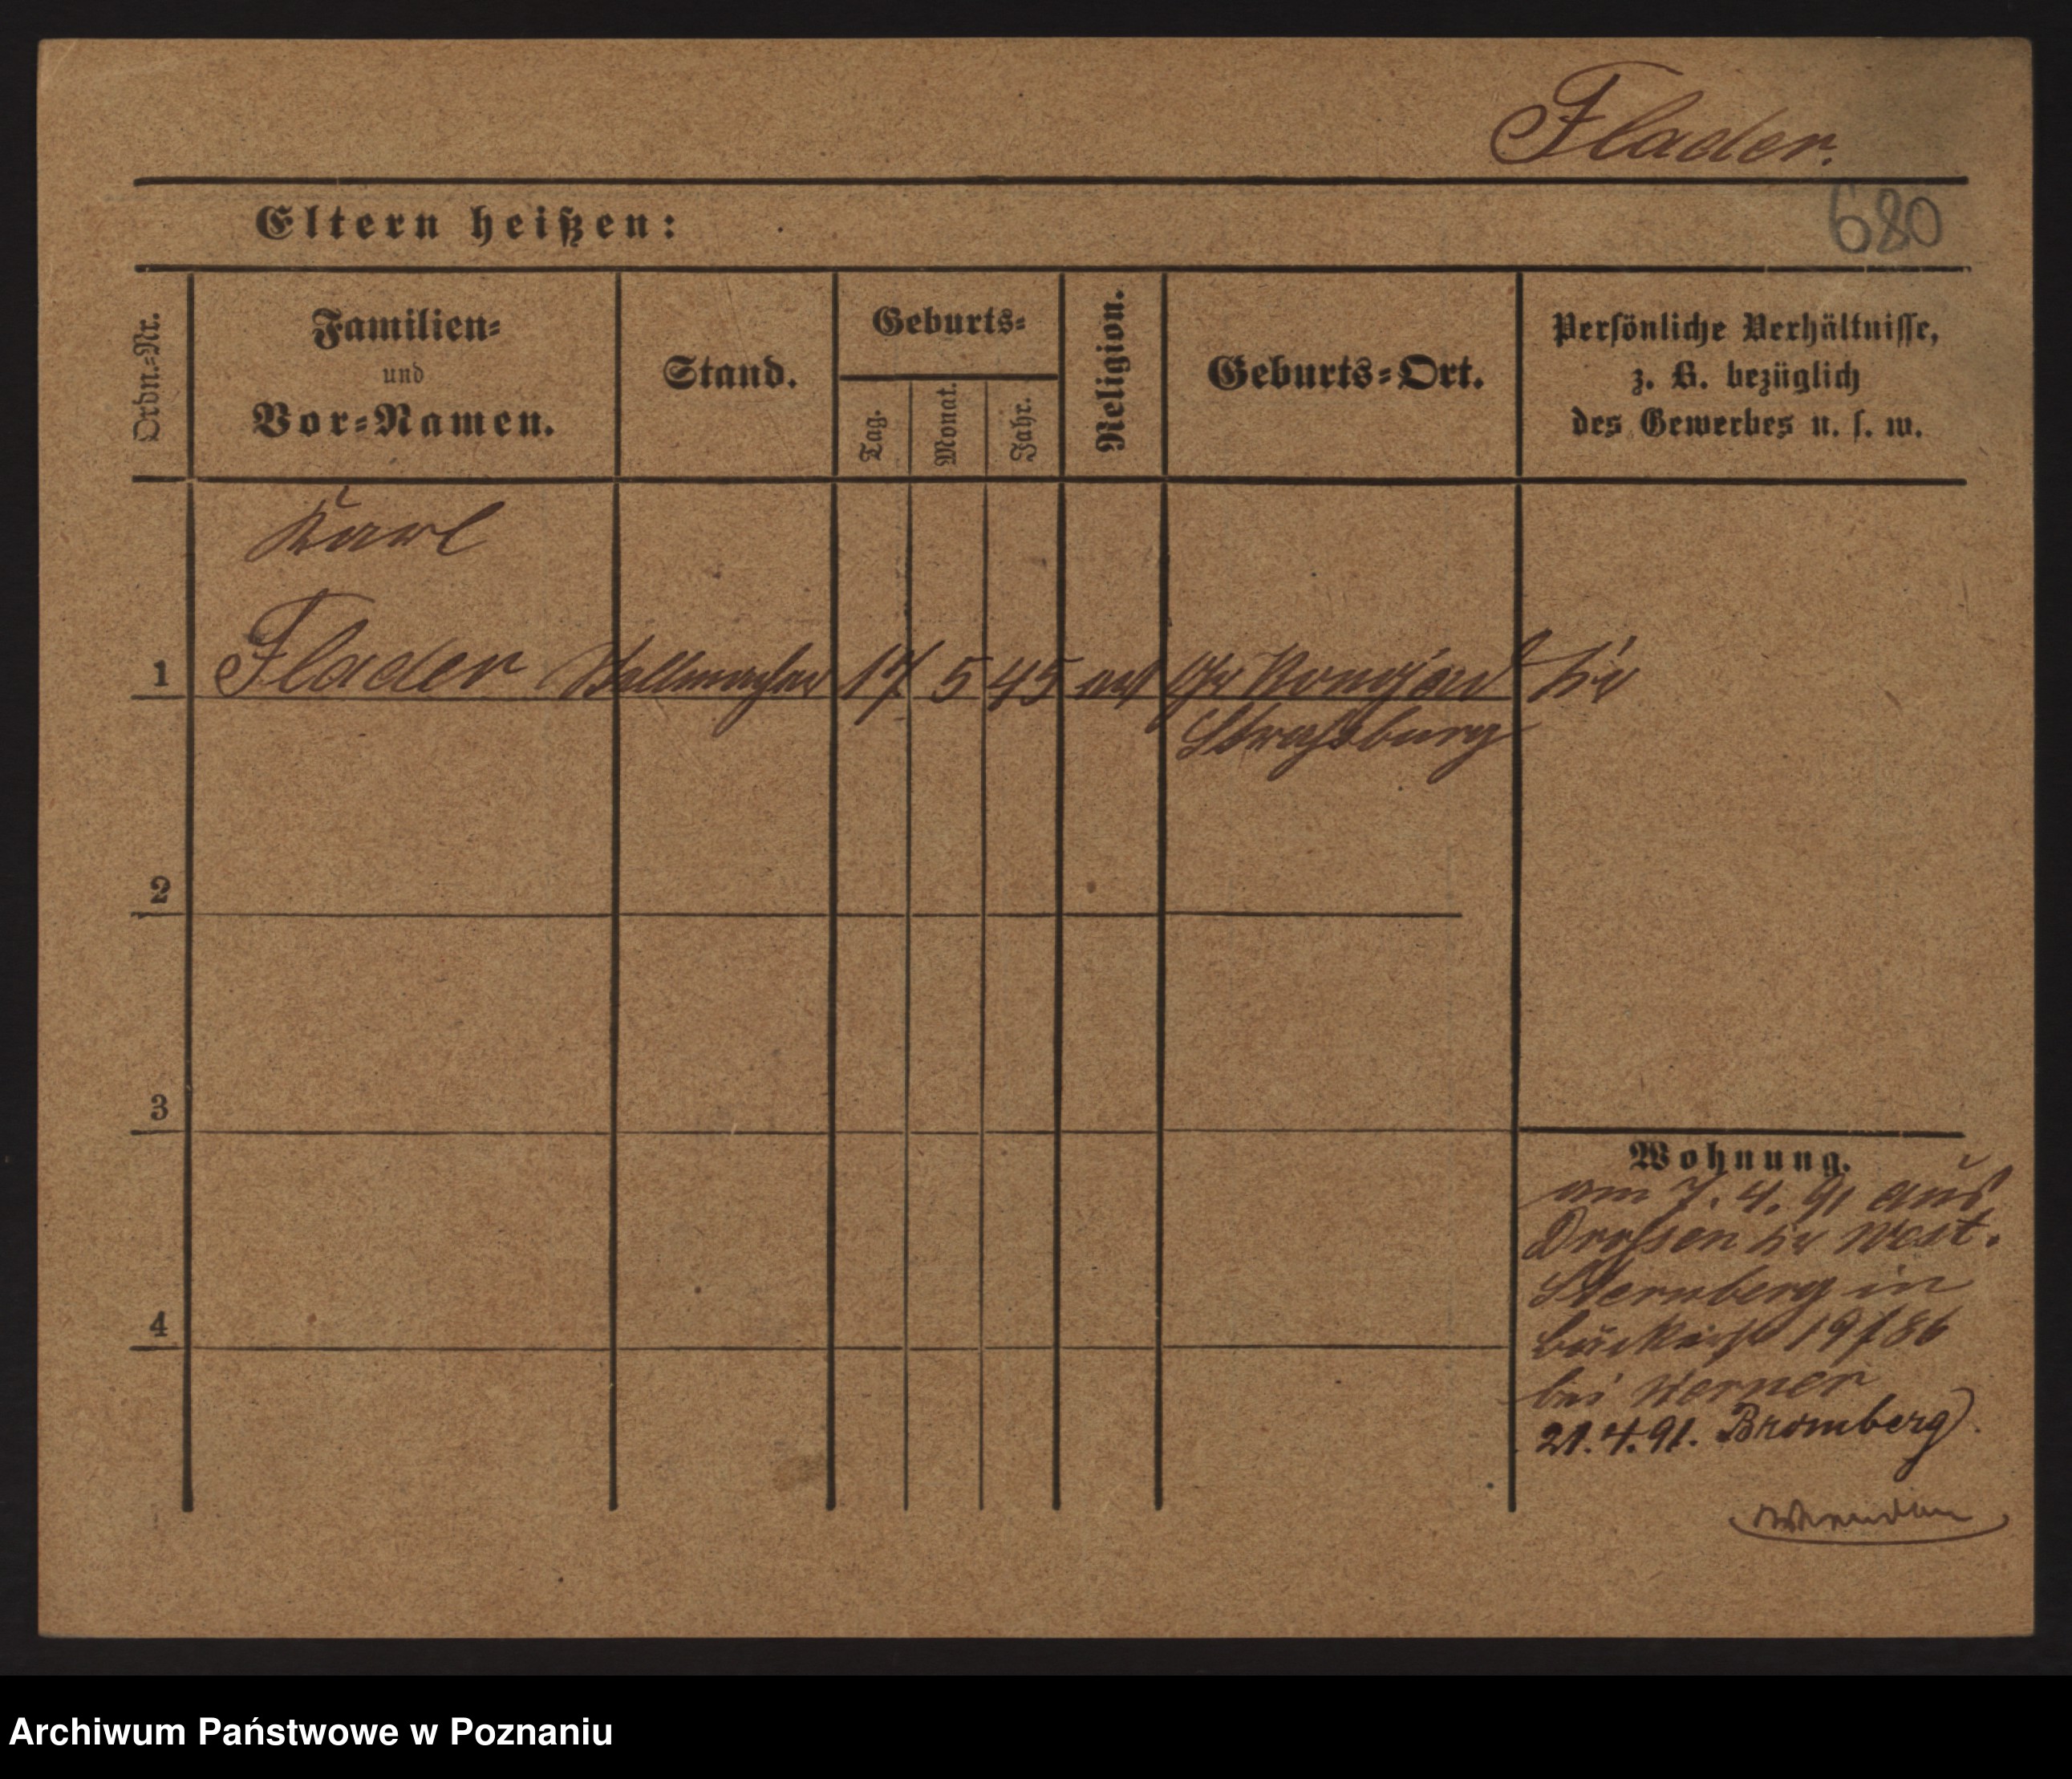 Flader.
680
Eltern heißen:
Ordn.-Nr.
Familien-
und
Vor-Namen.
Stand.
Geburts-
Tag.
Monat.
Jahr.
Religion.
Geburts-Ort.
Persönliche Verhältnisse,
z. B. bezüglich
des Gewerbes u. s. w.
Karl
1 Flader 17 5 45
Strassburg
2
3
4
Wohnung.
am 7. 4. 91 aus
Drossen West.
Sternberg in
bei Werner
21.4.91. Bromberg
Archiwum Państwowe w Poznaniu